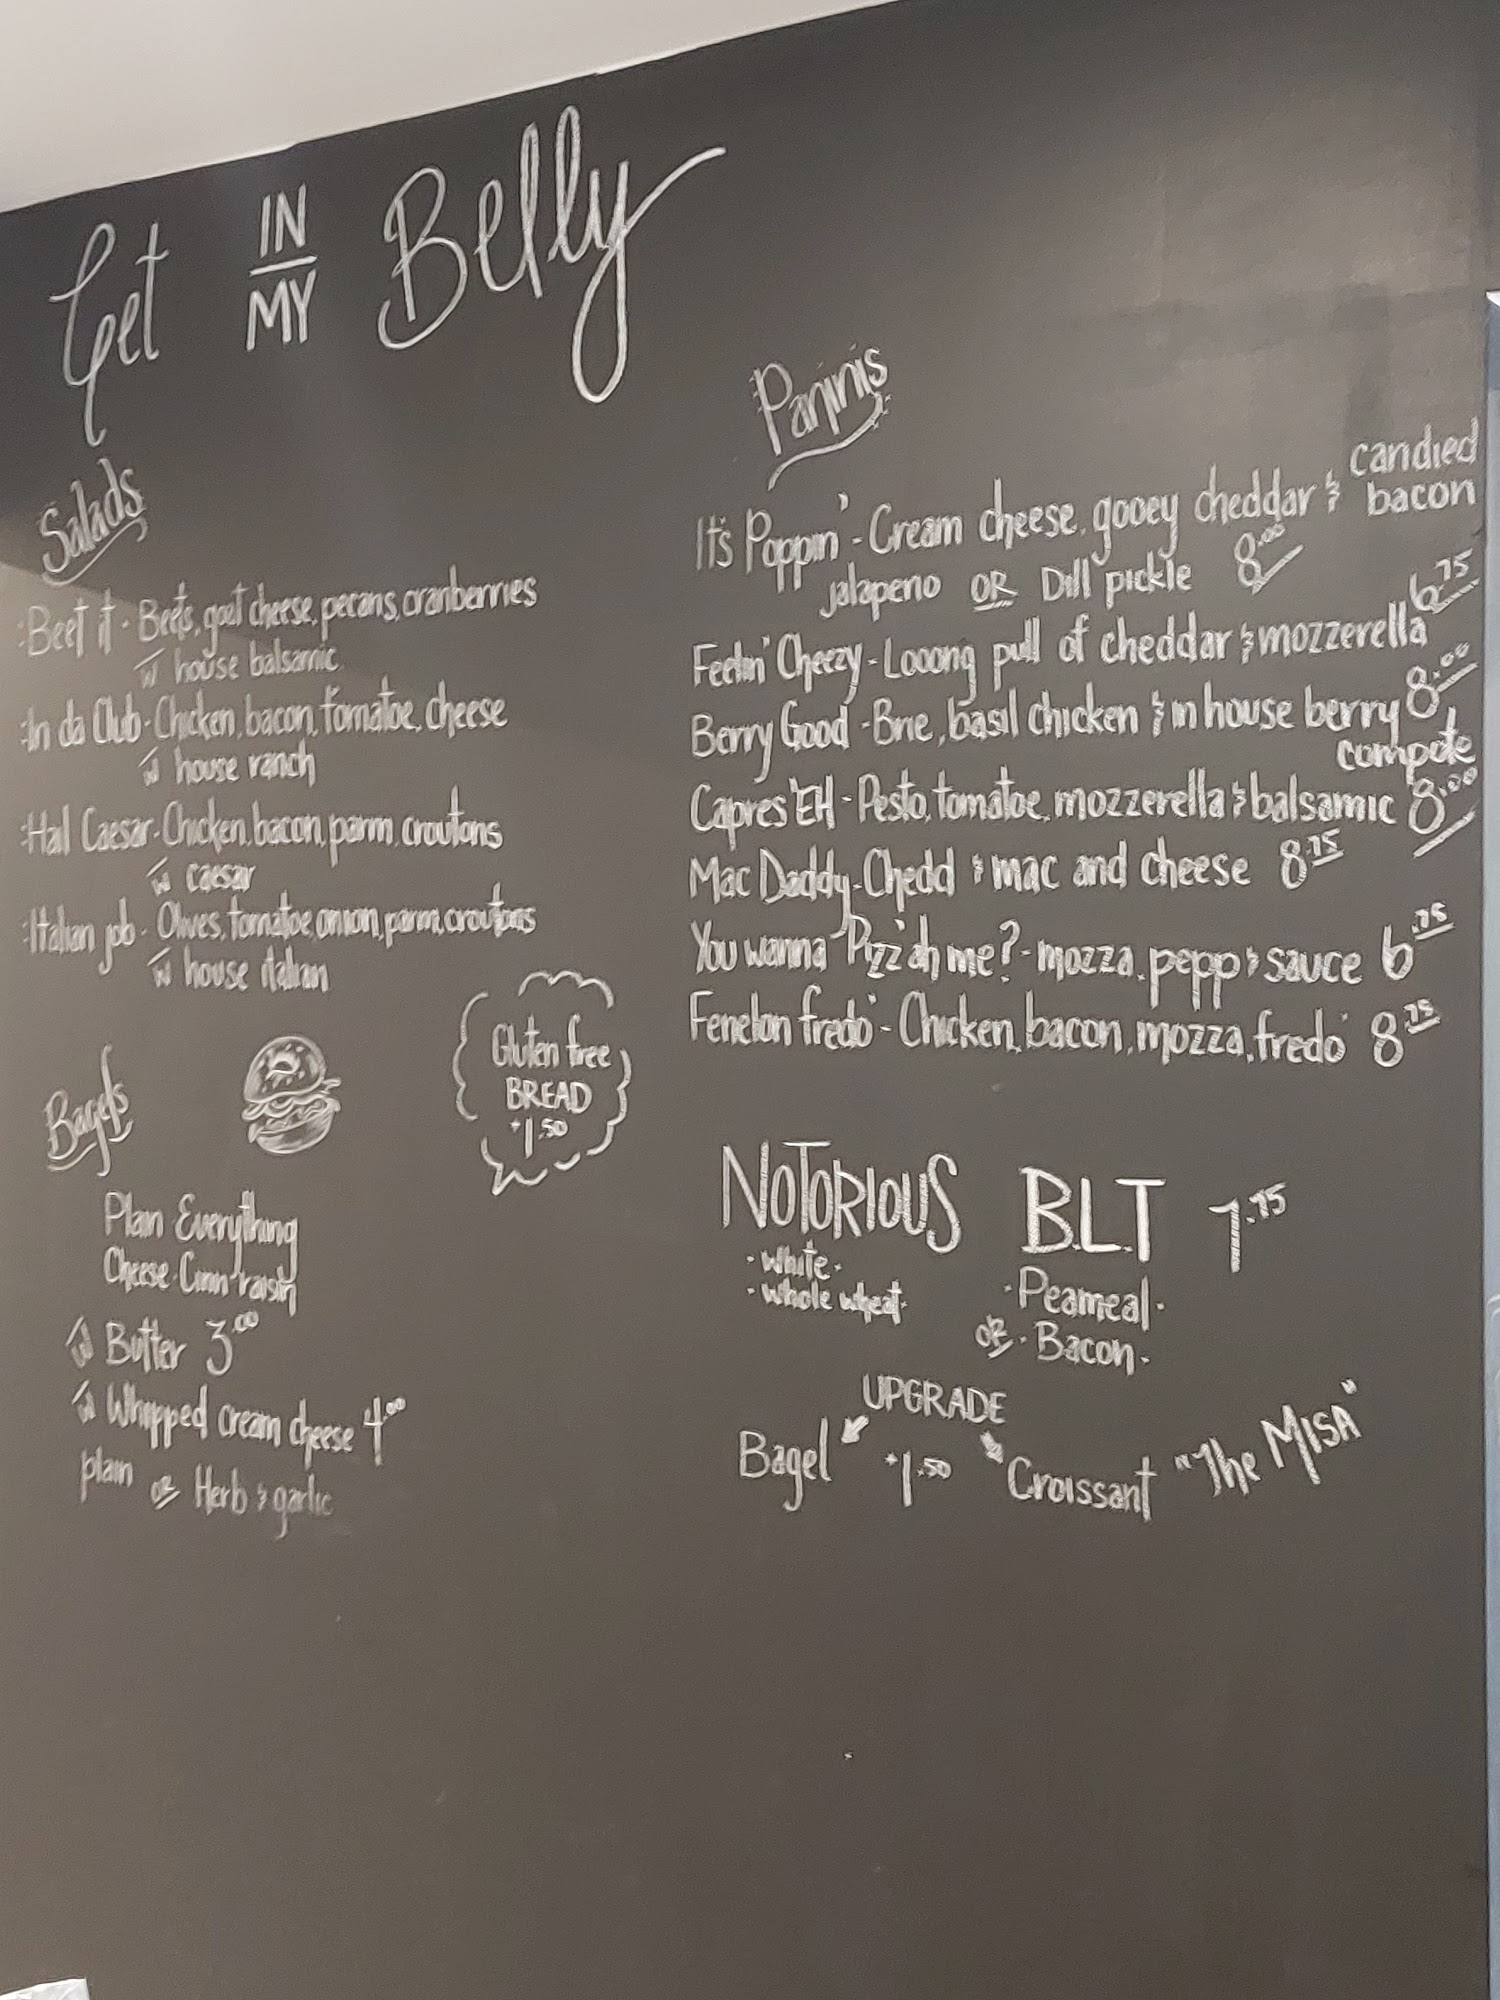 Get IN MY Belly
Salads
Beet it - Beets, goat cheese, pecans, cranberries
w house balsamic
In da Club - Chicken, bacon, tomatoe, cheese
w house ranch
Hail Caesar - Chicken, bacon, parm, croutons
w caesar
Italian job - Olives, tomatoe, onion, parm, croutons
w house italian
Gluten free
BREAD
+1.50
Bagels
Plain Everything
Cheese Cinn'raisin
w Butter 3.00
w Whipped cream cheese 4.00
plain OR Herb & garlic
Paninis
It's Poppin' - Cream cheese, gooey cheddar & candied bacon
jalapeno OR Dill pickle 8.00
Feelin' Cheezy - Looong pull of cheddar & mozzerella 6.75
Berry Good - Brie, basil chicken & in house berry compote 8.00
Capres'EH - Pesto, tomatoe, mozzerella & balsamic 8.00
Mac Daddy - Chedd & mac and cheese 8.75
You wanna "Pizz'ah me? - mozza, pepp & sauce 6.75
Fenelon fredo' - Chicken, bacon, mozza, fredo' 8.75
NOTORIOUS B.L.T 7.75
· White ·
· whole wheat ·
· Peameal ·
OR · Bacon ·
UPGRADE
Bagel +1.50 Croissant "The MISA"